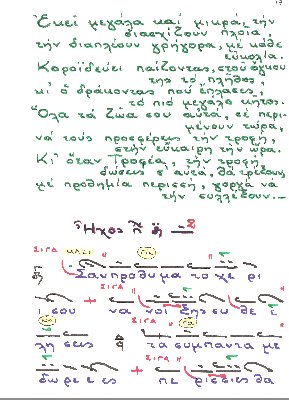 Ἐκεῖ μεγάλα καί μικρά, τήν
διασχίζουν πλοῖα,
τήν διαπλέουν γρήγορα, μέ κάθε
εὐκολία.
Κοροϊδεύει παίζοντας, στοῦ ὄγκου
της τό πλῆθος,
κι ὁ δράκοντας πού ἔπλασες,
τό πιό μεγάλο κῆτος.
Ὅλα τά ζῶα σου αὐτά, σέ περι-
μένουν τώρα,
νά τούς προσφέρεις τήν τροφή,
στήν εὔκαιρη τήν ὥρα.
Κι ὅταν Τροφέα, τήν τροφή,
δώσεις σ' αὐτά, θά τρέξουν,
μέ προθημία περισσή, γοργά νά
τήν συλλέξουν.-
Ἦχος
Σαν προθυμα το χε ρι
ι σου να νοι ξης ευ θε ε
λη σεις τα συμπαντα με
δω ρε ε ες πε ρισσιες θα